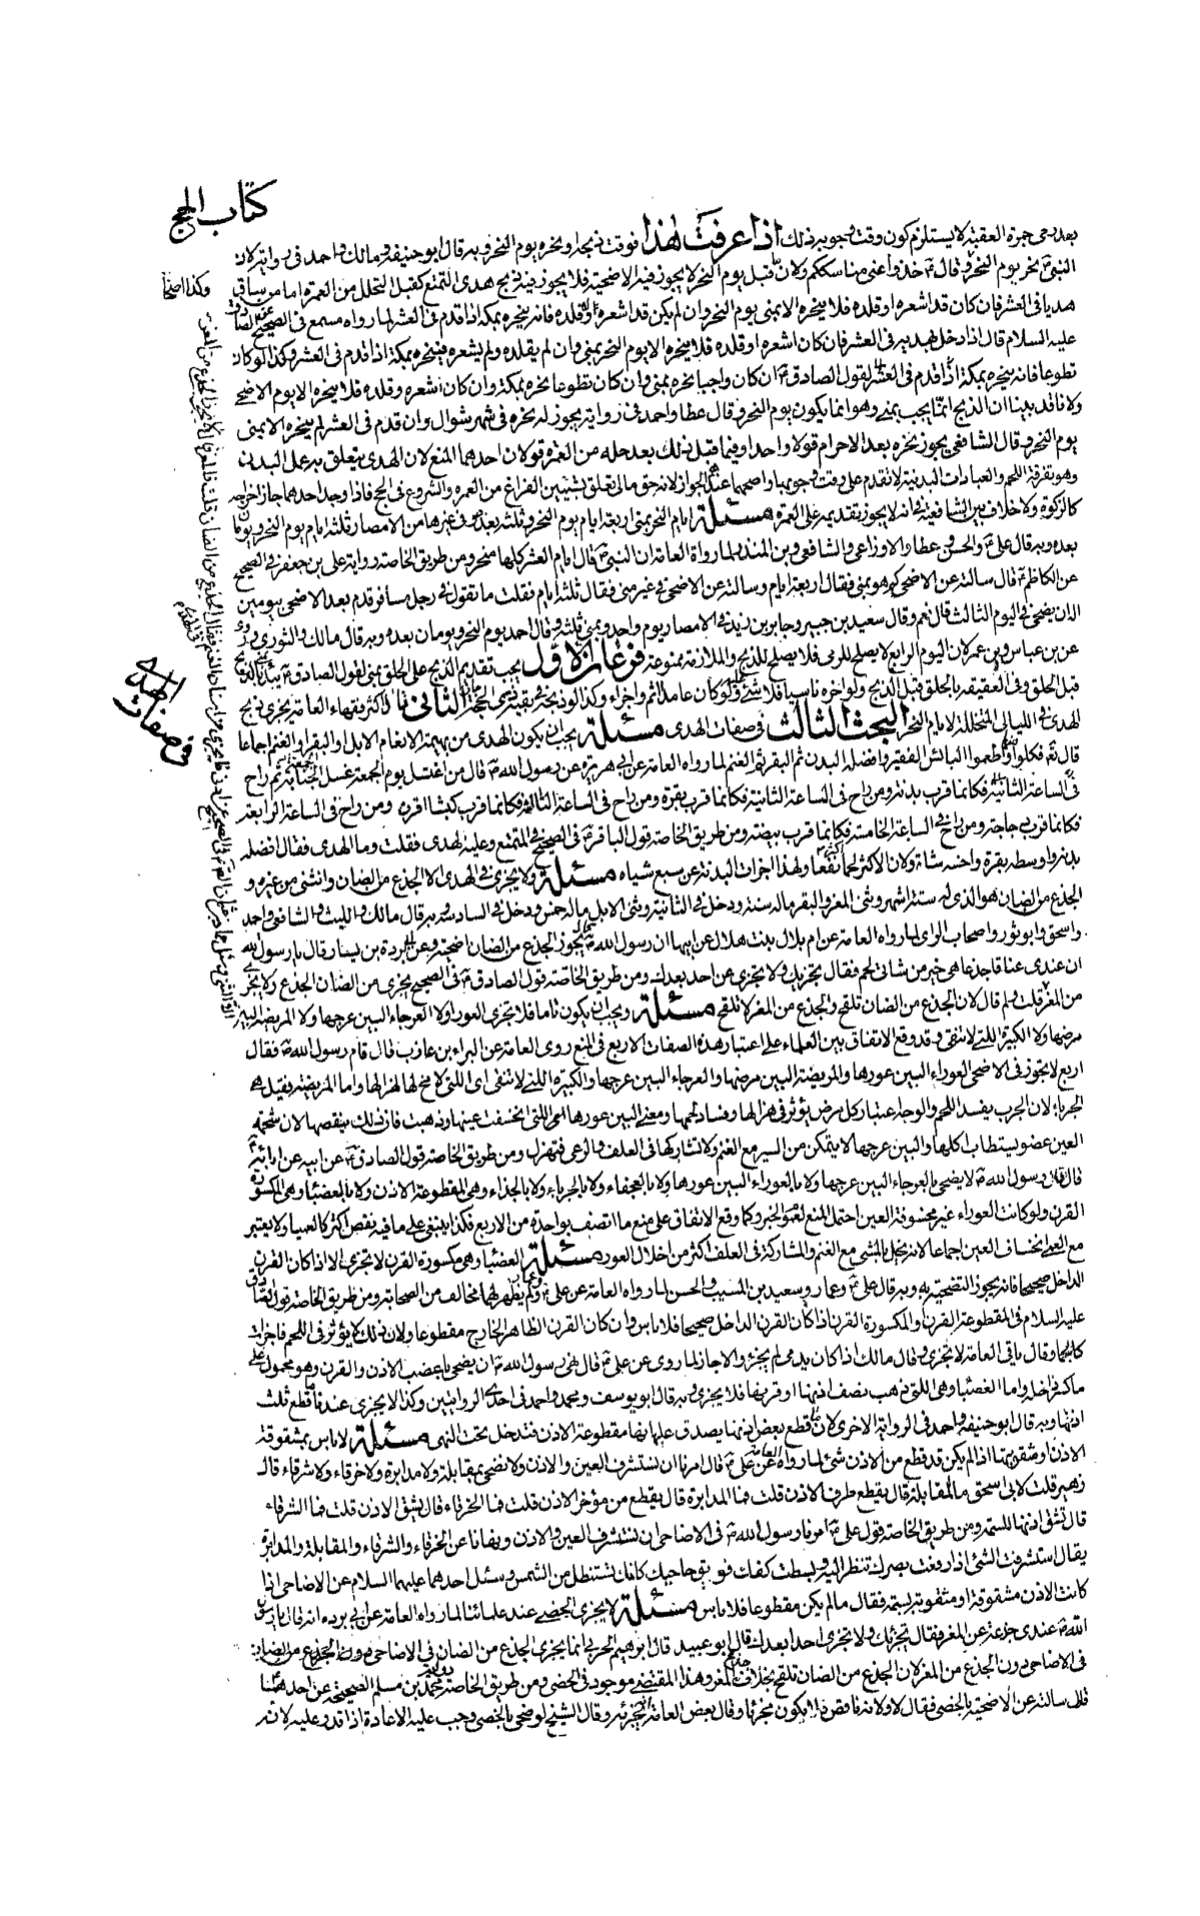 كتاب الحج
بعد رمى جمرة العقبة لا يستلزم كون وقت وجوبه ذلك اذا عرفت هذا فوقت ذبحه او نحره يوم النحر وبه قال ابو حنيفة ومالك واحمد فى رواية لان
النبى ص نحر يوم النحر وقال ص خذوا عنى مناسككم ولان ما قبل يوم النحر لا يجوز فيه الاضحية فلا يجوز فيه ذبح هدى التمتع كقبل التحلل من العمرة اما من ساق
هديا فى العشر فان كان قد اشعره او قلده فلا ينحره الا بمنى يوم النحر وان لم يكن قد اشعره ولا قلده فانه ينحره بمكة اذا قدم فى العشر لما رواه مسمع فى الصحيح عن الصادق
عليه السلام قال اذا دخل بهديه فى العشر فان كان اشعره او قلده فلا ينحره الا يوم النحر بمنى وان لم يقلده ولم يشعره فينحره بمكة اذا قدم فى العشر وكذا لو كان
تطوعا فانه ينحره بمكة اذا قدم فى العشر لقول الصادق ع ان كان واجبا نحره بمنى وان كان تطوعا نحره بمكة وان كان اشعره وقلده فلا ينحره الا يوم الاضحى
ولانا قد بينا ان الذبح انما يجب بمنى وهو انما يكون يوم النحر وقال عطا واحمد فى رواية يجوز له نحره فى شهر شوال وان قدم فى العشر لم ينحره الا بمنى
يوم النحر وقال الشافعى يجوز نحره بعد الاحرام قولا واحدا وفيما قبل ذلك بعد حله من العمرة قولان احدهما المنع لان الهدى يتعلق به عمل البدن
وهو تفرقة اللحم والعبادات البدنية لا تقدم على وقت وجوبها واصحهما عندهم الجواز لانه حق مالى تعلق بشيئين الفراغ من العمرة والشروع فى الحج فاذا وجد احدهما جاز اخراجه
كالزكوة ولا خلاف بين الشافعية فى انه لا يجوز تقديمه على العمرة مسئلة ايام النحر بمنى اربعة ايام يوم النحر وثلثة بعده وفى غيرها من الامصار ثلثة ايام يوم النحر ويومان
بعده وبه قال على ع والحسن وعطا والاوزاعى والشافعى وابن المنذر لما رواه العامة ان النبى ص قال ايام التشريق كلها منحر ومن طريق الخاصة رواية على بن جعفر فى الصحيح
عن الكاظم ع قال سالته عن الاضحى كم هو بمنى فقال اربعة ايام وسالته عن الاضحى فى غير منى فقال ثلثة ايام فقلت ما تقول فى رجل مسافر قدم بعد الاضحى بيومين
اله ان يضحى فى اليوم الثالث قال نعم وقال سعيد بن جبير وجابر بن زيد فى الامصار يوم واحد وبمنى ثلثة وقال احمد يوم النحر ويومان بعده وبه قال مالك والثورى وروى
عن ابن عباس وابن عمر لان اليوم الرابع لا يصلح للرمى فلا يصلح للذبح والملازمة ممنوعة فروع الاول يجب تقديم الذبح على الحلق بمنى لقول الصادق ع يبدأ بالذبح
قبل الحلق وفى العقيقة بالحلق قبل الذبح ولو اخره ناسيا فلا شئ ولو كان عامدا اثم واجزاء وكذا لو ذبحه فى بقية ذى الحجة جاز الثانى قال اكثر فقهاء العامة يجزى ذبح
الهدى فى الليالى المتخللة لايام النحر البحث الثالث فى صفات الهدى مسئلة يجب ان يكون الهدى من بهيمة الانعام الابل والبقر والغنم اجماعا
قال تع فكلوا منها واطعموا البائس الفقير وافضله البدن ثم البقر ثم الغنم لما رواه العامة عن ابى هريرة عن رسول الله ص قال من اغتسل يوم الجمعة غسل الجنابة ثم راح
فى الساعة الاولى فكانما قرب بدنة ومن راح فى الساعة الثانية فكانما قرب بقرة ومن راح فى الساعة الثالثة فكانما قرب كبشا اقرن ومن راح فى الساعة الرابعة
فكانما قرب دجاجة ومن راح فى الساعة الخامسة فكانما قرب بيضة ومن طريق الخاصة قول الباقر ع فى الصحيح فى المتمتع وعليه الهدى فقلت وما الهدى فقال افضله
بدنة واوسطه بقرة واخسه شاة ولان الاكثر لحما اكثر نفعا ولهذا اجزات البدنة عن سبع شياه مسئلة ولا يجزى فى الهدى الا الجذع من الضان والثنى من غيره و
الجذع من الضان هو الذى له ستة اشهر وثنى المعز والبقر ماله سنة ودخل فى الثانية وثنى الابل ماله خمس ودخل فى السادسة وبه قال مالك والليث والشافعى واحمد
واسحق وابو ثور واصحاب الراى لما رواه العامة عن ام بلال بنت هلال عن ابيها ان رسول الله ص قال يجوز الجذع من الضان اضحية وعن ابى بردة بن نيار قال يا رسول الله
ان عندى عناقا جذعا هى خير من شاتى لحم فقال تجزيك ولا تجزى عن احد بعدك ومن طريق الخاصة قول الصادق ع فى الصحيح يجزى من الضان الجذع ولا يجزى
من المعز قلت ولم قال لان الجذع من الضان تلقح والجذع من المعز لا تلقح مسئلة ويجب ان يكون تاما فلا تجزى العورا ولا العرجاء البين عرجها ولا المريضة البين
مرضها ولا الكبيرة التى لا تنقى وقد وقع الاتفاق بين العلماء على اعتبار هذه الصفات الاربع فى المنع روى العامة عن البراء بن عازب قال قام رسول الله ص فقال
اربع لا تجوز فى الاضحى العوراء البين عورها والمريضة البين مرضها والعرجاء البين عرجها والكبيرة التى لا تنقى اى التى لا مخ لها لهزالها واما المريضة فقيل هى
الجرباء لان الجرب يفسد اللحم والوجه اعتبار كل مرض يؤثر فى هزالها وفساد لحمها ومعنى البين عورها اى التى انخسفت عينها وذهبت فان ذلك ينقصها لان شحمة
العين عضو يستطاب اكلها والبين عرجها لا يتمكن من السير مع الغنم ولا تشاركها فى العلف والرعى فتهزل ومن طريق الخاصة قول الصادق ع عن ابيه عن ابائه ع
قال قال رسول الله ص لا يضحى بالعرجاء البين عرجها ولا بالعوراء البين عورها ولا بالعجفاء ولا بالجرباء ولا بالجذاء وهى المقطوعة الاذن ولا بالعضباء وهى المكسورة
القرن ولو كانت العوراء غير مخسوفة العين احتمل المنع لعموم الخبر وكما وقع الاتفاق على منع ما اتصف بواحدة من الاربع فكذا ينبغى على ما فيه نقص اكثر كالعمياء ولا يعتبر
مع العمى انخساف العين اجماعا لانه يخل بالمشى مع الغنم والمشاركة فى العلف اكثر من اخلال العور مسئلة العضباء وهى مكسورة القرن لا تجزى الا اذا كان القرن
الداخل صحيحا فانه يجوز التضحية به وبه قال على ع وعمار وسعيد بن المسيب والحسن لما رواه العامة عن على ع وعمار ولم يظهر لهما مخالف من الصحابة ومن طريق الخاصة قول الصادق
عليه السلام فى المقطوعة القرن او المكسورة القرن اذا كان القرن الداخل صحيحا فلا باس وان كان القرن الظاهر الخارج مقطوعا ولان ذلك لا يؤثر فى اللحم فاجزأت
كالجماء وقال باقى العامة لا تجزى وقال مالك اذا كان يدمى لم يجز والا جاز لما روى عن على ع قال نهى رسول الله ص ان يضحى باعضب الاذن والقرن وهو محمول على
مكسر الداخل واما العضباء وهى التى ذهب نصف اذنها او قرنها فلا يجزى وبه قال ابو يوسف ومحمد واحمد فى احدى الروايتين وكذا لا يجزى عندنا ما قطع ثلث
اذنها وبه قال ابو حنيفة واحمد فى الرواية الاخرى لان ما قطع بعض اذنها يصدق عليها انها مقطوعة الاذن فتدخل تحت النهى مسئلة لا باس بمشقوقة
الاذن او مثقوبتها اذا لم يكن قد قطع من الاذن شئ لما رواه العامة عن على ع قال امرنا ان نستشرف العين والاذن ولا نضحى بمقابلة ولا مدابرة ولا خرقاء ولا شرقاء قال
زهير قلت لابى اسحق ما المقابلة قال يقطع طرف الاذن قلت فما المدابرة قال يقطع من مؤخر الاذن قلت فما الخرقاء قال يشق الاذن قلت فما الشرقاء
قال تشق اذنها للسمة ومن طريق الخاصة قول على ع امرنا رسول الله ص فى الاضاحى ان نستشرف العين والاذن ونهانا عن الخرقاء والشرقاء والمقابلة والمدابرة
يقال استشرفت الشئ اذا رفعت بصرك تنظر اليه وبسطت كفك فوق حاجبك كانك تستظل من الشمس وسئل احدهما عليهما السلام عن الاضاحى اذا
كانت الاذن مشقوقة او مثقوبة بسمة فقال ما لم يكن مقطوعا فلا باس مسئلة لا يجزى الخصى عند علمائنا لما رواه العامة عن ابى بردة انه قال يا رسول
الله ص عندى جذعة من المعز فقال تجزئك ولا تجزى احدا بعدك قال ابو عبيد قال ابرهيم الحربى انما يجزى الجذع من الضان فى الاضاحى دون الجذع من
فى الاضاحى دون الجذع من المعز لان الجذع من الضان تلقح بخلاف جذع المعز وهذا المقتضى موجود فى الخصى ومن طريق الخاصة رواية محمد بن مسلم الصحيحة عن احدهما ع
قال سالته عن الاضحية بالخصى فقال لا ولانه ناقص فلا يكون مجزئا وقال بعض العامة انه يجزئه وقال الشيخ لو ضحى بالخصى وجب عليه الاعادة اذا قدر عليه لانه
فى صفات الهدى